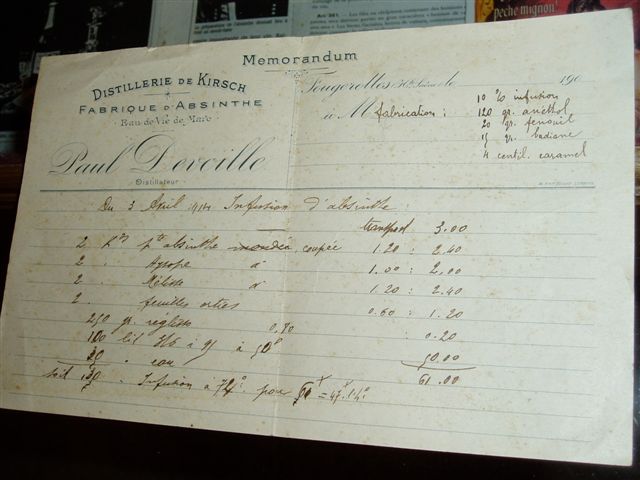 pêche mignon!
Memorandum
DISTILLERIE DE KIRSCH
FABRIQUE D'ABSINTHE
Eau-de-Vie de Marc
Paul Devoille
Distillateur
Fougerolles, Hte Saône, le 190
à M
fabrication :
10 % infusion
120 gr. anéthol
20 gr. fenouil
15 gr. badiane
4 centil. caramel
Du 3 April 1914 Infusion d'absinthe :
transport 3.00
2 pte absinthe mondée coupée 1.20 : 2.40
2 . Hysope d° 1.00 : 2.00
2 . Mélisse d° 1.20 : 2.40
2 . feuilles orties 0.60 : 1.20
250 gr. reglisse 0.80 : 0.20
100 lit 3/6 à 95 à 50° 50.00
30 " eau 61.00
soit 130 " Infusion à 72° pour